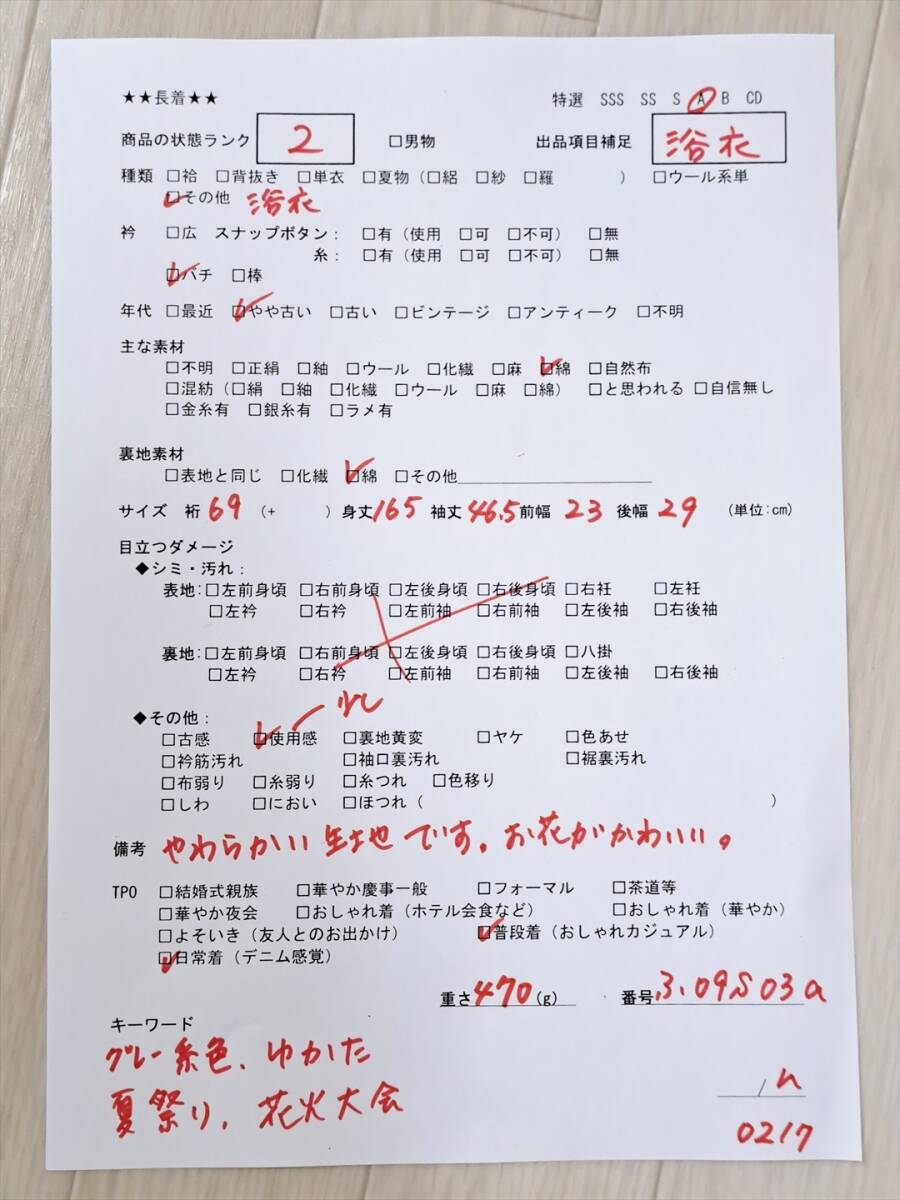 ★★長着★★ 特選 SSS SS S A B CD
商品の状態ランク 2 □男物 出品項目補足 浴衣
種類 □袷 □背抜き □単衣 □夏物(□絽 □紗 □羅 ) □ウール系単
☑その他 浴衣
衿 □広 スナップボタン: □有(使用 □可 □不可) □無
糸: □有(使用 □可 □不可) □無
☑バチ □棒
年代 □最近 ☑やや古い □古い □ビンテージ □アンティーク □不明
主な素材
□不明 □正絹 □紬 □ウール □化繊 □麻 ☑綿 □自然布
□混紡(□絹 □紬 □化繊 □ウール □麻 □綿) □と思われる □自信無し
□金糸有 □銀糸有 □ラメ有
裏地素材
□表地と同じ □化繊 ☑綿 □その他
サイズ 裄 69 (+ ) 身丈 165 袖丈 46.5 前幅 23 後幅 29 (単位:cm)
目立つダメージ
◆シミ・汚れ:
表地:□左前身頃 □右前身頃 □左後身頃 □右後身頃 □右衽 □左衽
□左衿 □右衿 □左前袖 □右前袖 □左後袖 □右後袖
裏地:□左前身頃 □右前身頃 □左後身頃 □右後身頃 □八掛
□左衿 □右衿 □左前袖 □右前袖 □左後袖 □右後袖
◆その他: 少し
□古感 ☑使用感 □裏地黄変 □ヤケ □色あせ
□衿筋汚れ □袖口裏汚れ □裾裏汚れ
□布弱り □糸弱り □糸つれ □色移り
□しわ □におい □ほつれ( )
備考 やわらかい生地です。お花がかわいい。
TPO □結婚式親族 □華やか慶事一般 □フォーマル □茶道等
□華やか夜会 □おしゃれ着(ホテル会食など) □おしゃれ着(華やか)
□よそいき(友人とのお出かけ) ☑普段着(おしゃれカジュアル)
☑日常着(デニム感覚)
重さ 470 (g) 番号 3.09S03a
キーワード
グレー系色、ゆかた
夏祭り、花火大会
/h
0217